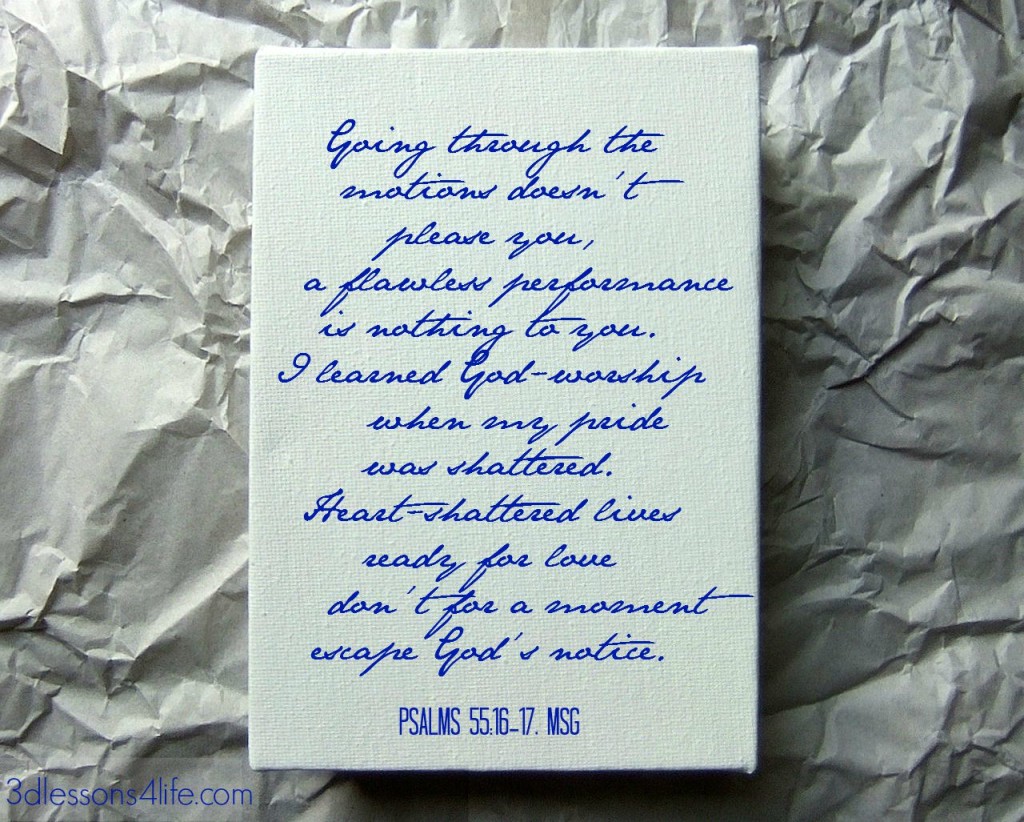 Going through the
motions doesn't
please you,
a flawless performance
is nothing to you.
I learned God-worship
when my pride
was shattered.
Heart-shattered lives
ready for love
don't for a moment
escape God's notice.
PSALMS 55:16-17. MSG
3dlessons4life.com